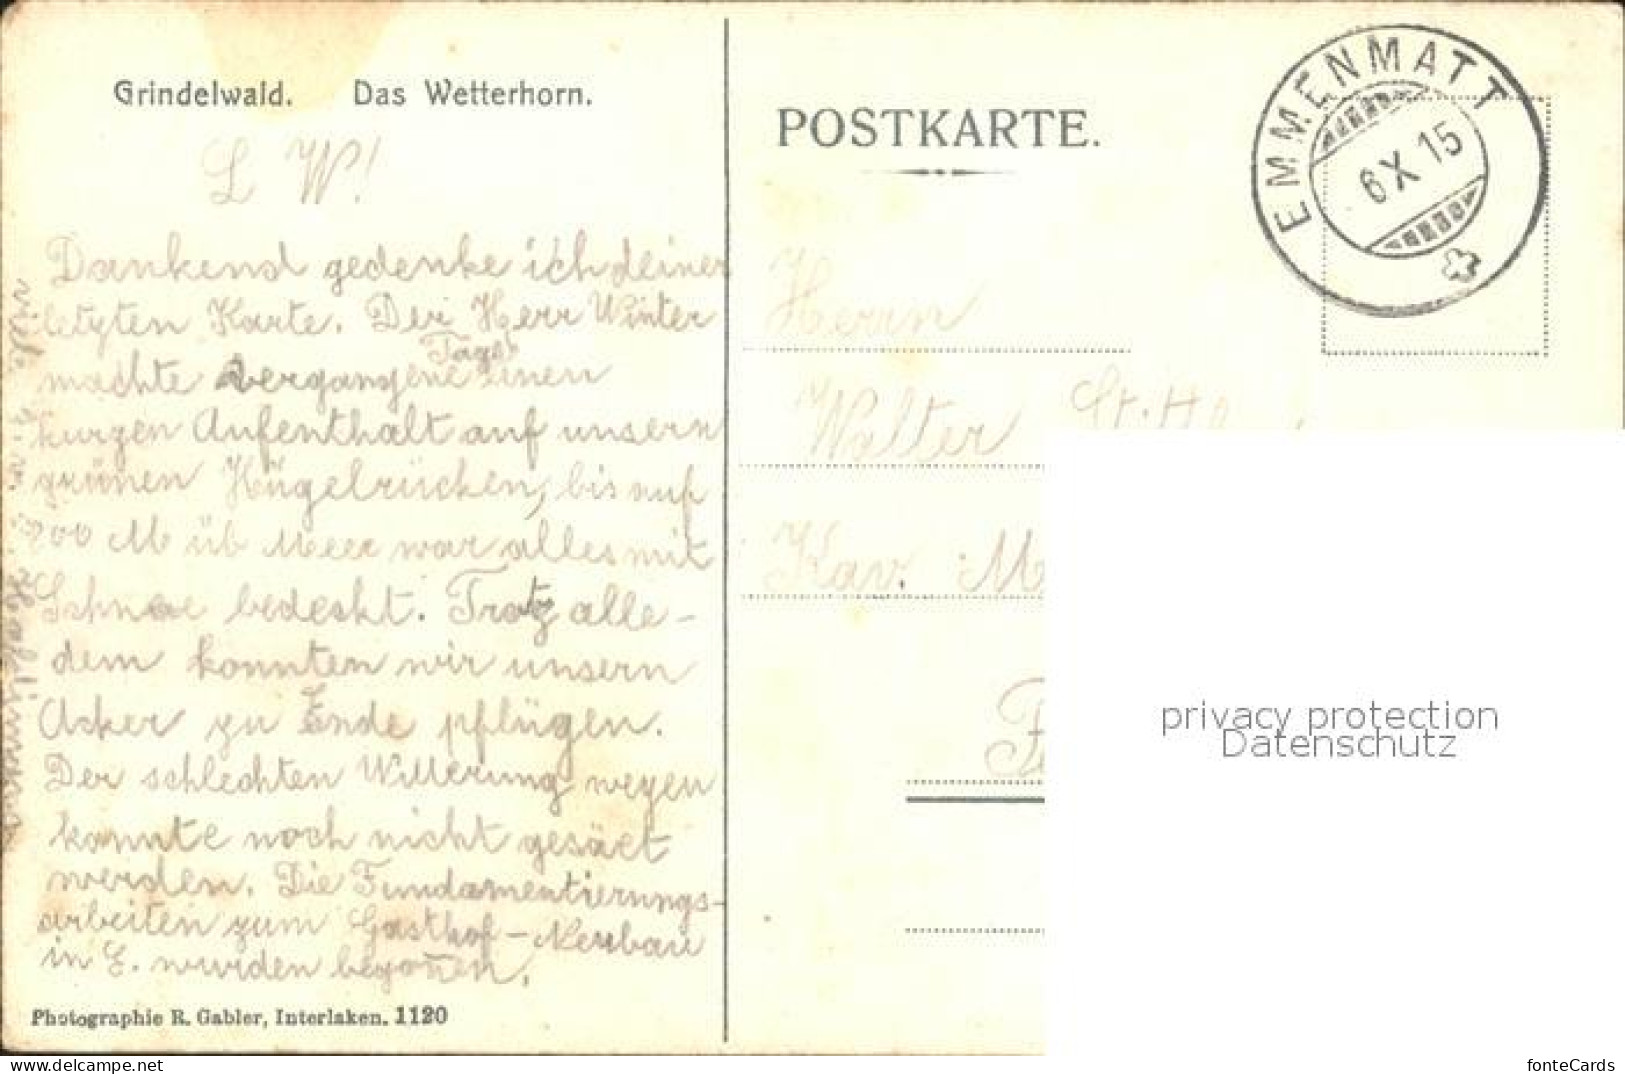 Grindelwald. Das Wetterhorn.
L W!
Dankend gedenke ich deiner
letzten Karte. Der Herr Winter
machte vergangene Tage einen
kurzen Aufenthalt auf unsern
grünen Hügelrücken, bis auf
900 M üb Meer war alles mit
Schnee bedeckt. Trotz alle-
dem konnten wir unsern
Acker zu Ende pflügen.
Der schlechten Witterung wegen
konnte noch nicht gesäet
werden. Die Fundamentierungs-
arbeiten zum Gasthof-Neubau
in E. wurden begonnen.
Photographie R. Gabler, Interlaken. 1120
POSTKARTE.
EMMENMATT
6 X 15
Herrn
Walter
Kav. M
privacy protection
Datenschutz
delcampe.net
fonteCards